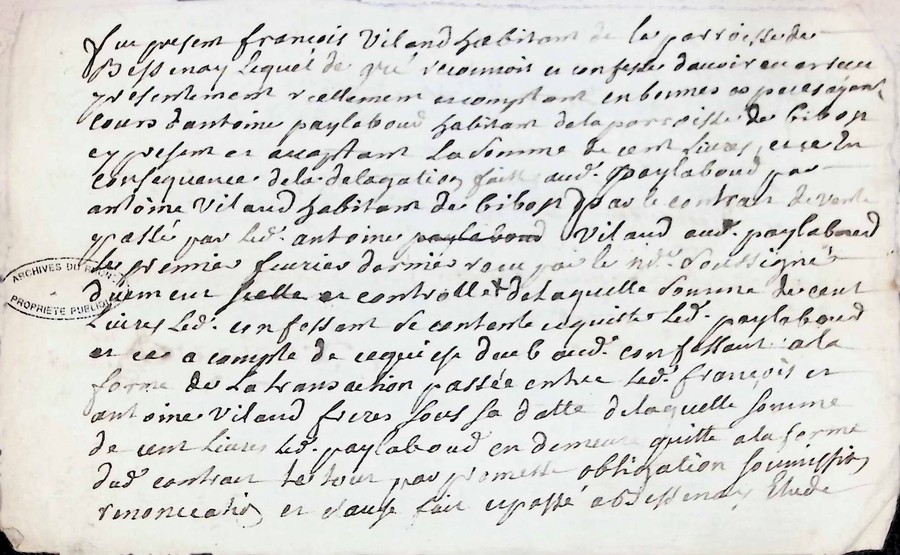 fut present françois Viland habitant de la parroisse de
Bessenay lequel de gré reconnois et confesse davoir eu et receu
presentement reellement et comptant en bonnes especes ayant
cours d'antoine paylaboud habitant de la parroisse de bibost
cy present et acceptant La Somme de cent Livres, et ce En
consequence de la delagation fait aud. paylaboud par
antoine Viland habitant de bibost par le contrat de vente
passé par Led. antoine paylaboud Viland aud. paylaboud
Le premier feurier dernier receu par le nre. Soussigné
duement scellé et controllé de Laquelle Somme de cent
Livres Led. confessant Se contente e quitte Led. paylaboud
et ce a compte de ce qui est deub aud. confessant a la
forme de La transaction passée entre Led. françois et
antoine Viland freres sous sa datte de laquelle somme
de cent Livres Led. paylaboud en demeure quitte a la forme
dud. contrat Le tout par promesse obligation soumission
renonciation et clause fait e passé a bessenay Etude
ARCHIVES DU
PROPRIETE PUBLIQUE